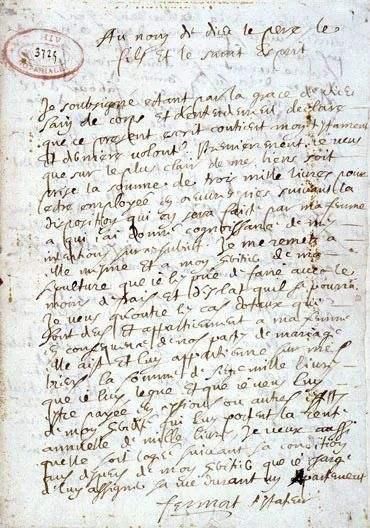 3725
Au nom de dieu le pere le
fils et le saint esprit
Je soubsigne estant par la grace de dieu
sain de corps et dentendement declare
que ce present escrit contient mon testament
et derniere volonté. Premierement je veus
que sur le plus clair de mes biens soit
prise la somme de trois mille livres pour
estre employée en œuvres pies suivant la
disposition qui en sera faite par ma femme
a qui j'ai donné cognoissance de mes
intentions sur ce subiet. Je me remets a
elle mesme et a mon heritier de ma
sepulture que je les prie de faire avec le
moins de frais et d'esclat qu'il se pourra
Je veus qu'outre les cas dotaux qui
sont deus et appartiennent a ma femme
en consequence de nos pactes de mariage
elle aist et luy appartienne sur mes
biens la somme de mille livres
que je luy legue et que je veus luy
estre payée en ou autres effets
de mon heritier qui luy portent la rente
annuelle de mille livres, Je veux aussi
quelle soit logée suivant sa condition
aux despens de mon heritier que je charge
de luy assigner sa vie durant un apartement
fermat testateur